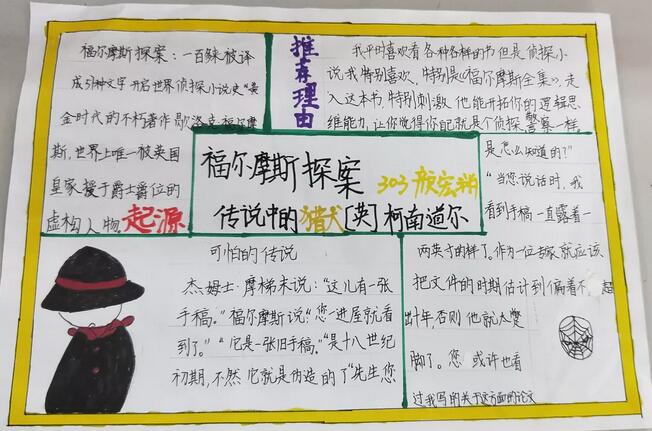 福尔摩斯探案：一百余被译
成引种文字开启世界侦探小说史"黄
金时代的不朽著作歇洛克福尔摩
斯，世界上唯一被英国
皇家授于爵士爵位的
虚构人物。起源
推荐理由
我平时喜欢看各种各样的书但是侦探小
说，我特别喜欢、特别是《福尔摩斯全集》走
入这本书，特别刺激，他能开拓你的逻辑思
维能力，让你觉得你自己就是个侦探警察一样
福尔摩斯探案
303
传说中的猎犬[英]柯南道尔
可怕的传说
杰姆士·摩梯末说："这儿有一张
手稿。"福尔摩斯说："您一进屋就看
到了。""它是一张旧手稿。""是十八世纪
初期，不然它就是伪造的了"先生您
是怎么知道的？"
"当您说话时，我
看到手稿一直露着一
两英寸的样子。作为一位专家就应该
把文件的时期估计到偏差不超
出十年，否则他就太蹩
脚了。您或许也看
过我写的关于这方面的论文